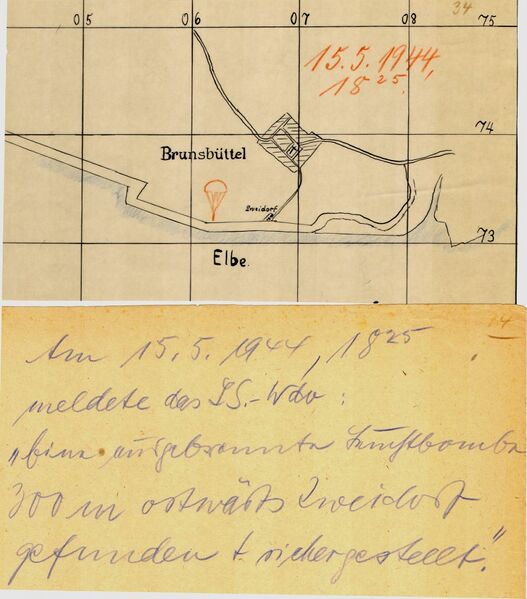 05 06 07 08 75
34
15.5.1944,
18 25.
74
Brunsbüttel
Zweidorf
73
Elbe.
Am 15.5.1944, 18 25
meldete das LS.-Wdo :
„Eine ausgebrannte Leuchtbombe
300 m ostwärts Zweidorf
gefunden u. sichergestellt."